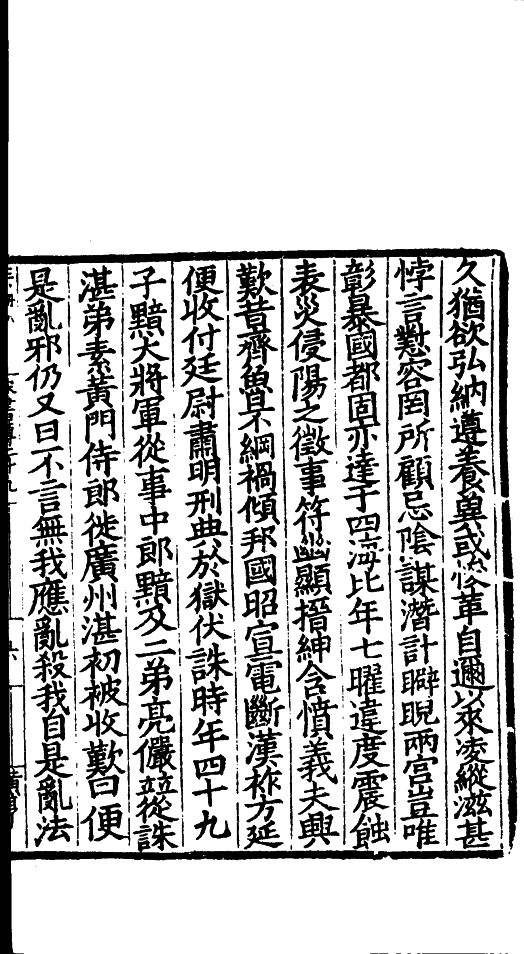 久猶欲弘納遵養冀或悛革自邇以來凌縱滋甚
悖言懟容罔所顧忌陰謀潛計睥睨兩宮豈唯
彰暴國都固亦達于四海比年七曜違度震蝕
表災侵陽之徵事符幽顯搢紳含憤義夫興
歎昔齊魯不綱禍傾邦國昭宣電斷漢祚方延
便收付廷尉肅明刑典於獄伏誅時年四十九
子黯大將軍從事中郎黯及二弟亮儼並從誅
湛弟素黃門侍郎徙廣州湛初被收歎曰便
是亂邪仍又曰不言無我應亂殺我自是亂法